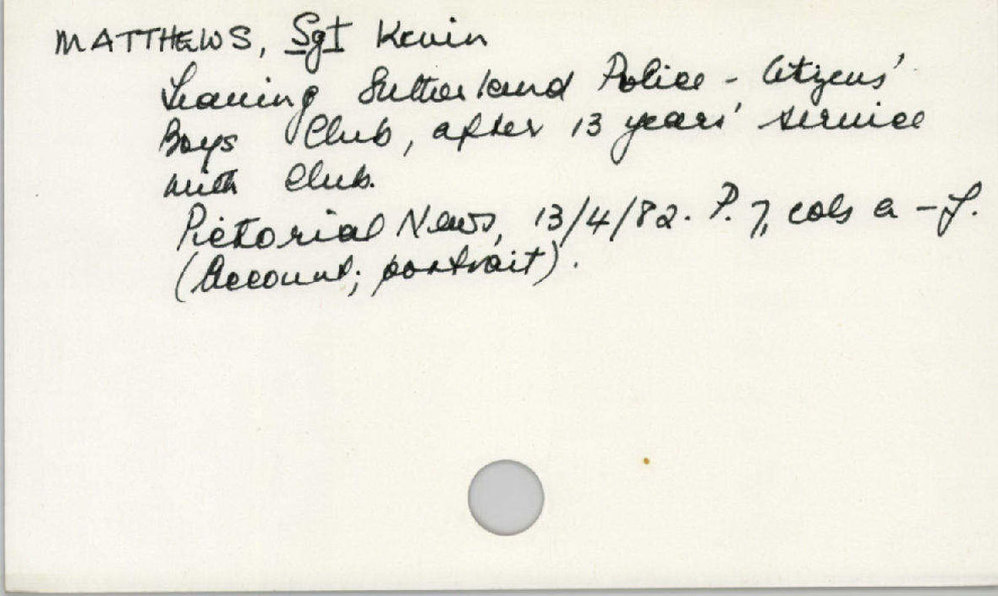 MATTHEWS, Sgt Kevin
Leaving Sutherland Police - Citizens'
Boys Club, after 13 years' service
with Club.
Pictorial News, 13/4/82. P. 7, cols a - f.
(Account; portrait).